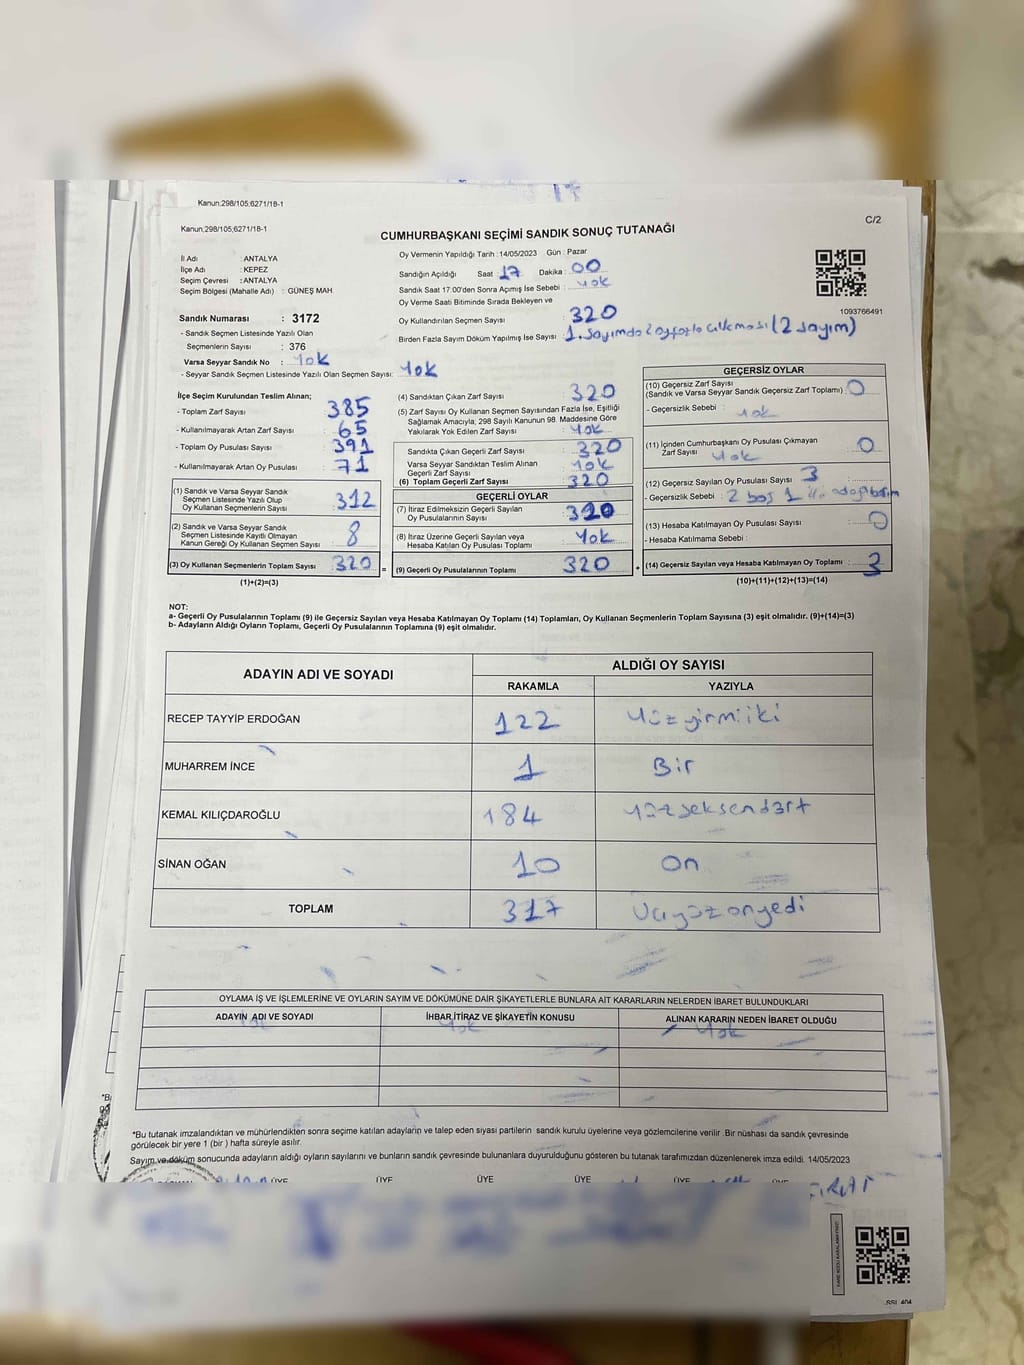 Kanun:298/105;6271/18-1
C/2
Kanun;298/105;6271/18-1
CUMHURBAŞKANI SEÇİMİ SANDIK SONUÇ TUTANAĞI
İl Adı : ANTALYA
İlçe Adı : KEPEZ
Seçim Çevresi : ANTALYA
Seçim Bölgesi (Mahalle Adı) : GÜNEŞ MAH.
Oy Vermenin Yapıldığı Tarih : 14/05/2023 Gün : Pazar
Sandığın Açıldığı Saat : 17 Dakika : 00
Sandık Saat 17:00'den Sonra Açımış İse Sebebi : Yok
Oy Verme Saati Bitiminde Sırada Bekleyen ve
Oy Kullandırılan Seçmen Sayısı : 320
Birden Fazla Sayım Döküm Yapılmış İse Sayısı : 1. Sayımda 2 oy fazla çıkması (2 sayım)
1093766491
Sandık Numarası : 3172
- Sandık Seçmen Listesinde Yazılı Olan
Seçmenlerin Sayısı : 376
Varsa Seyyar Sandık No : Yok
- Seyyar Sandık Seçmen Listesinde Yazılı Olan Seçmen Sayısı: Yok
İlçe Seçim Kurulundan Teslim Alınan;
- Toplam Zarf Sayısı : 385
- Kullanılmayarak Artan Zarf Sayısı : 65
- Toplam Oy Pusulası Sayısı : 391
- Kullanılmayarak Artan Oy Pusulası : 71
(1) Sandık ve Varsa Seyyar Sandık
Seçmen Listesinde Yazılı Olup
Oy Kullanan Seçmenlerin Sayısı : 312
(2) Sandık ve Varsa Seyyar Sandık
Seçmen Listesinde Kayıtlı Olmayan
Kanun Gereği Oy Kullanan Seçmen Sayısı : 8
(3) Oy Kullanan Seçmenlerin Toplam Sayısı : 320 =
(1)+(2)=(3)
(4) Sandıktan Çıkan Zarf Sayısı : 320
(5) Zarf Sayısı Oy Kullanan Seçmen Sayısından Fazla İse, Eşitliği
Sağlamak Amacıyla, 298 Sayılı Kanunun 98. Maddesine Göre
Yakılarak Yok Edilen Zarf Sayısı : Yok
Sandıkta Çıkan Geçerli Zarf Sayısı : 320
Varsa Seyyar Sandıktan Teslim Alınan
Geçerli Zarf Sayısı : Yok
(6) Toplam Geçerli Zarf Sayısı : 320
GEÇERLİ OYLAR
(7) İtiraz Edilmeksizin Geçerli Sayılan
Oy Pusulalarının Sayısı : 320
(8) İtiraz Üzerine Geçerli Sayılan veya
Hesaba Katılan Oy Pusulası Toplamı : Yok
(9) Geçerli Oy Pusulalarının Toplamı : 320 +
GEÇERSİZ OYLAR
(10) Geçersiz Zarf Sayısı
(Sandık ve Varsa Seyyar Sandık Geçersiz Zarf Toplamı) : 0
- Geçersizlik Sebebi : Yok
(11) İçinden Cumhurbaşkanı Oy Pusulası Çıkmayan
Zarf Sayısı : 0
Yok
(12) Geçersiz Sayılan Oy Pusulası Sayısı : 3
- Geçersizlik Sebebi : 2 boş 1
(13) Hesaba Katılmayan Oy Pusulası Sayısı : 0
- Hesaba Katılmama Sebebi :
(14) Geçersiz Sayılan veya Hesaba Katılmayan Oy Toplamı : 3
(10)+(11)+(12)+(13)=(14)
NOT:
a- Geçerli Oy Pusulalarının Toplamı (9) ile Geçersiz Sayılan veya Hesaba Katılmayan Oy Toplamı (14) Toplamları, Oy Kullanan Seçmenlerin Toplam Sayısına (3) eşit olmalıdır. (9)+(14)=(3)
b- Adayların Aldığı Oyların Toplamı, Geçerli Oy Pusulalarının Toplamına (9) eşit olmalıdır.
ADAYIN ADI VE SOYADI ALDIĞI OY SAYISI
RAKAMLA YAZIYLA
RECEP TAYYİP ERDOĞAN 122 Yüzyirmiiki
MUHARREM İNCE 1 Bir
KEMAL KILIÇDAROĞLU 184 Yüzseksendört
SİNAN OĞAN 10 On
TOPLAM 317 Üçyüzonyedi
OYLAMA İŞ VE İŞLEMLERİNE VE OYLARIN SAYIM VE DÖKÜMÜNE DAİR ŞİKAYETLERLE BUNLARA AİT KARARLARIN NELERDEN İBARET BULUNDUKLARI
ADAYIN ADI VE SOYADI İHBAR,İTİRAZ VE ŞİKAYETİN KONUSU ALINAN KARARIN NEDEN İBARET OLDUĞU
Yok Yok Yok
*Bu tutanak imzalandıktan ve mühürlendikten sonra seçime katılan adayların ve talep eden siyasi partilerin sandık kurulu üyelerine veya gözlemcilerine verilir .Bir nüshası da sandık çevresinde
görülecek bir yere 1 (bir ) hafta süreyle asılır.
Sayım ve döküm sonucunda adayların aldığı oyların sayılarını ve bunların sandık çevresinde bulunanlara duyurulduğunu gösteren bu tutanak tarafımızdan düzenlenerek imza edildi. 14/05/2023
ÜYE ÜYE ÜYE ÜYE ÜYE ÜYE